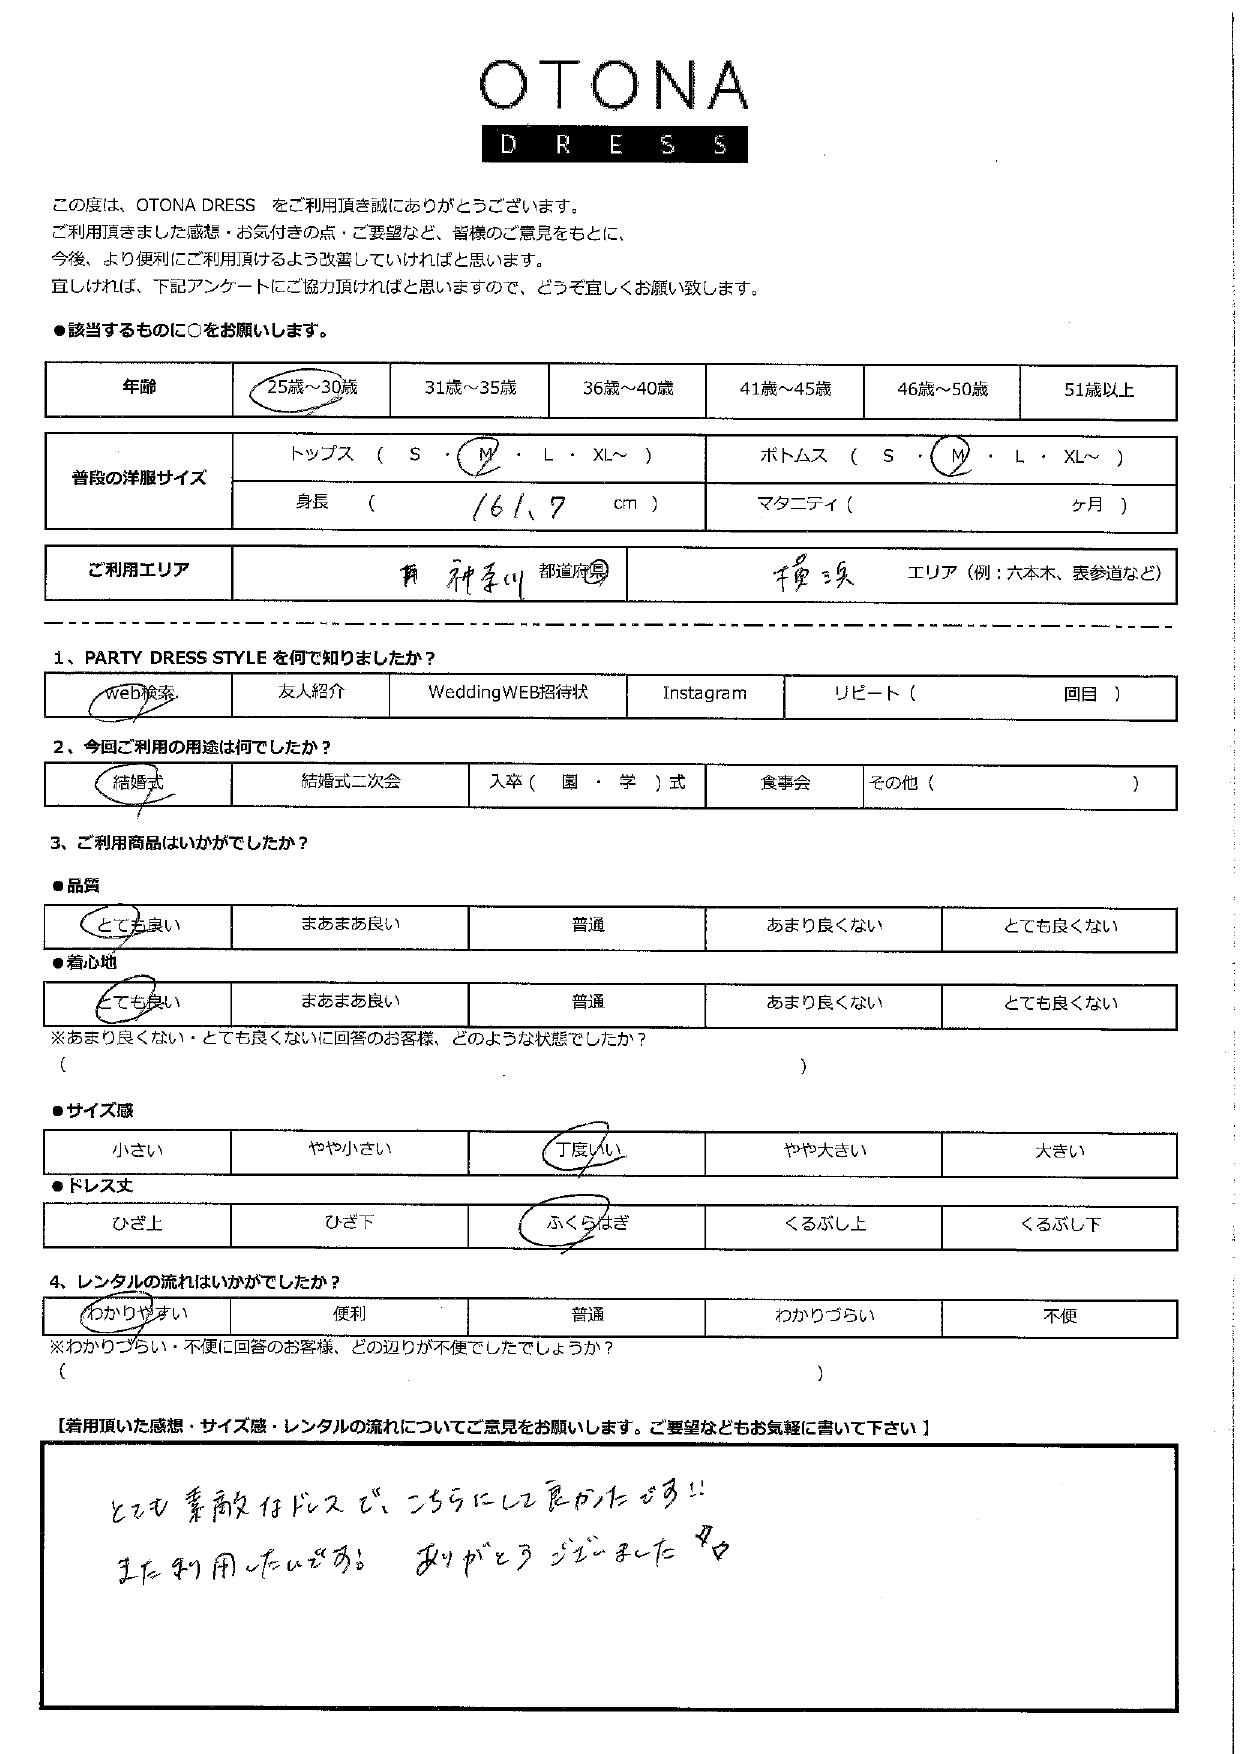 OTONA
DRESS
この度は、OTONA DRESS をご利用頂き誠にありがとうございます。
ご利用頂きました感想・お気付きの点・ご要望など、皆様のご意見をもとに、
今後、より便利にご利用頂けるよう改善していければと思います。
宜しければ、下記アンケートにご協力頂ければと思いますので、どうぞ宜しくお願い致します。
●該当するものに○をお願いします。
年齢 25歳～30歳 31歳～35歳 36歳～40歳 41歳～45歳 46歳～50歳 51歳以上
普段の洋服サイズ
トップス ( S ・ M ・ L ・ XL～ ) ボトムス ( S ・ M ・ L ・ XL～ )
身長 ( 161.7 cm ) マタニティ ( ヶ月 )
ご利用エリア 神奈川 都道府県 横浜 エリア（例：六本木、表参道など）
1、PARTY DRESS STYLE を何で知りましたか？
web検索 友人紹介 WeddingWEB招待状 Instagram リピート ( 回目 )
2、今回ご利用の用途は何でしたか？
結婚式 結婚式二次会 入卒 ( 園 ・ 学 ) 式 食事会 その他 ( )
3、ご利用商品はいかがでしたか？
●品質
とても良い まあまあ良い 普通 あまり良くない とても良くない
●着心地
とても良い まあまあ良い 普通 あまり良くない とても良くない
※あまり良くない・とても良くないに回答のお客様、どのような状態でしたか？
( )
●サイズ感
小さい やや小さい 丁度いい やや大きい 大きい
●ドレス丈
ひざ上 ひざ下 ふくらはぎ くるぶし上 くるぶし下
4、レンタルの流れはいかがでしたか？
わかりやすい 便利 普通 わかりづらい 不便
※わかりづらい・不便に回答のお客様、どの辺りが不便でしたでしょうか？
( )
【着用頂いた感想・サイズ感・レンタルの流れについてご意見をお願いします。ご要望などもお気軽に書いて下さい】
とても素敵なドレスで、こちらにして良かったです!!
また利用したいです! ありがとうございました